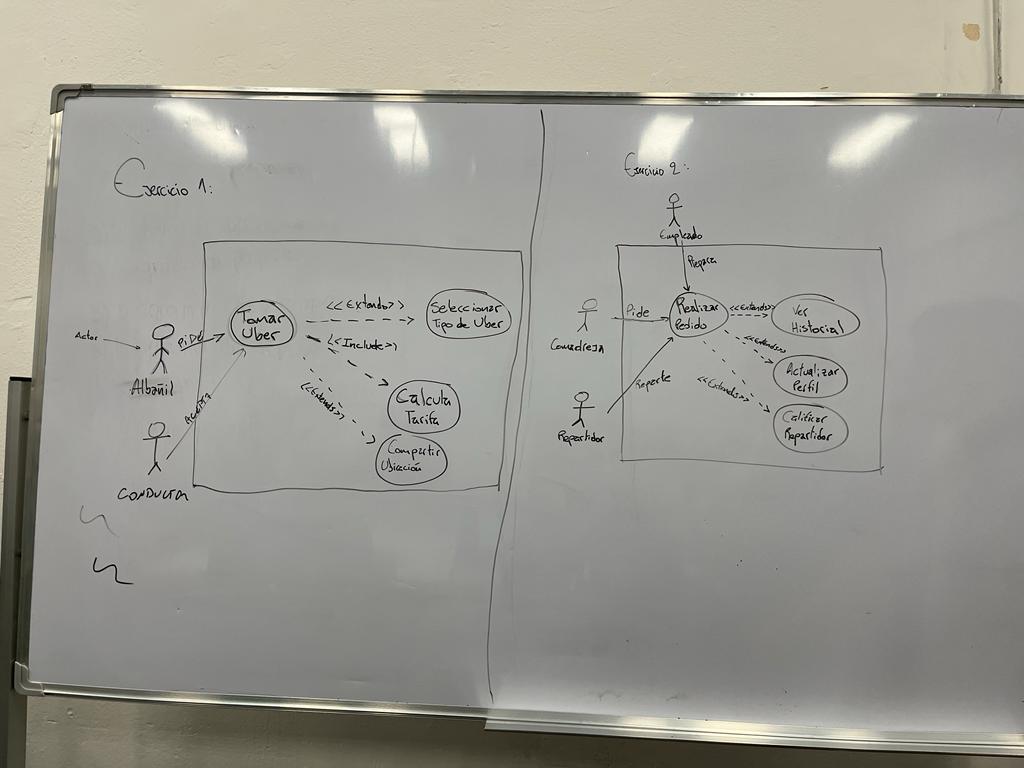 Ejercicio 1:
Actor
Albañil
PIDE
CONDUCTOR
Tomar
Uber
<<Extends>>
Seleccionar
Tipo de Uber
<<Include>>
Calcula
Tarifa
<<Extends>>
Compartir
Ubicación
Ejercicio 2:
Empleado
Prepara
Comadreja
Pide
Repartidor
Reparte
Realizar
Pedido
<<Extends>>
Ver
Historial
<<Extends>>
Actualizar
Perfil
<<Extends>>
Calificar
Repartidor